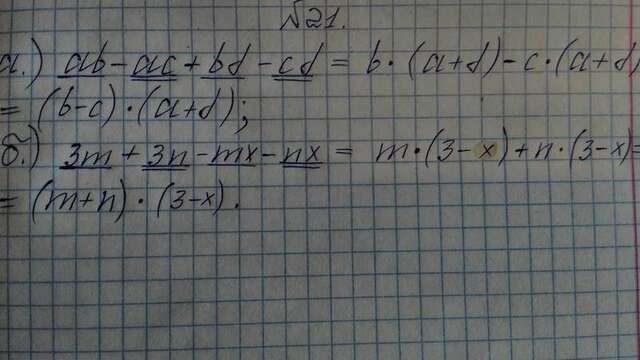 №21.
а.) ab-ac+bd-cd = b·(a+d)-c·(a+d)
= (b-c)·(a+d);
б.) 3m+3n-mx-nx = m·(3-x)+n·(3-x)=
= (m+n)·(3-x).